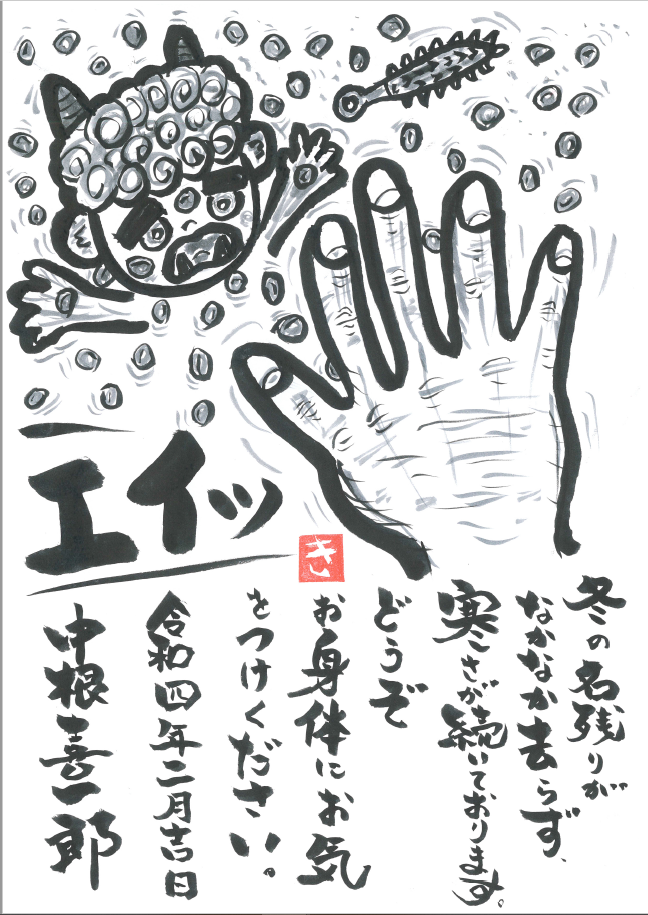 エイッ
き
冬の名残りが
なかなか去らず、
寒さが続いております。
どうぞ
お身体にお気
をつけください。
令和四年二月吉日
中根喜一郎